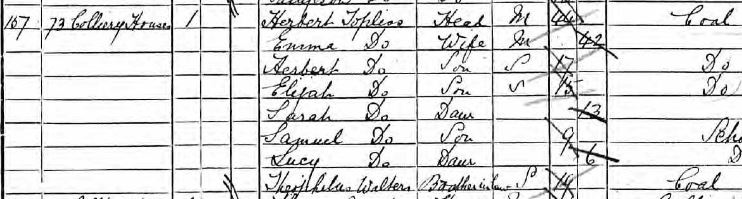 157 73 Colliery Houses 1 Herbert Topliss Head M 44 Coal
Emma Do Wife M 42
Herbert Do Son S 17 Do
Elijah Do Son S 15 Do
Sarah Do Daur 13
Samuel Do Son 9 Scho
Lucy Do Daur 6 D
Theophilus Walters Brother in law S 19 Coal